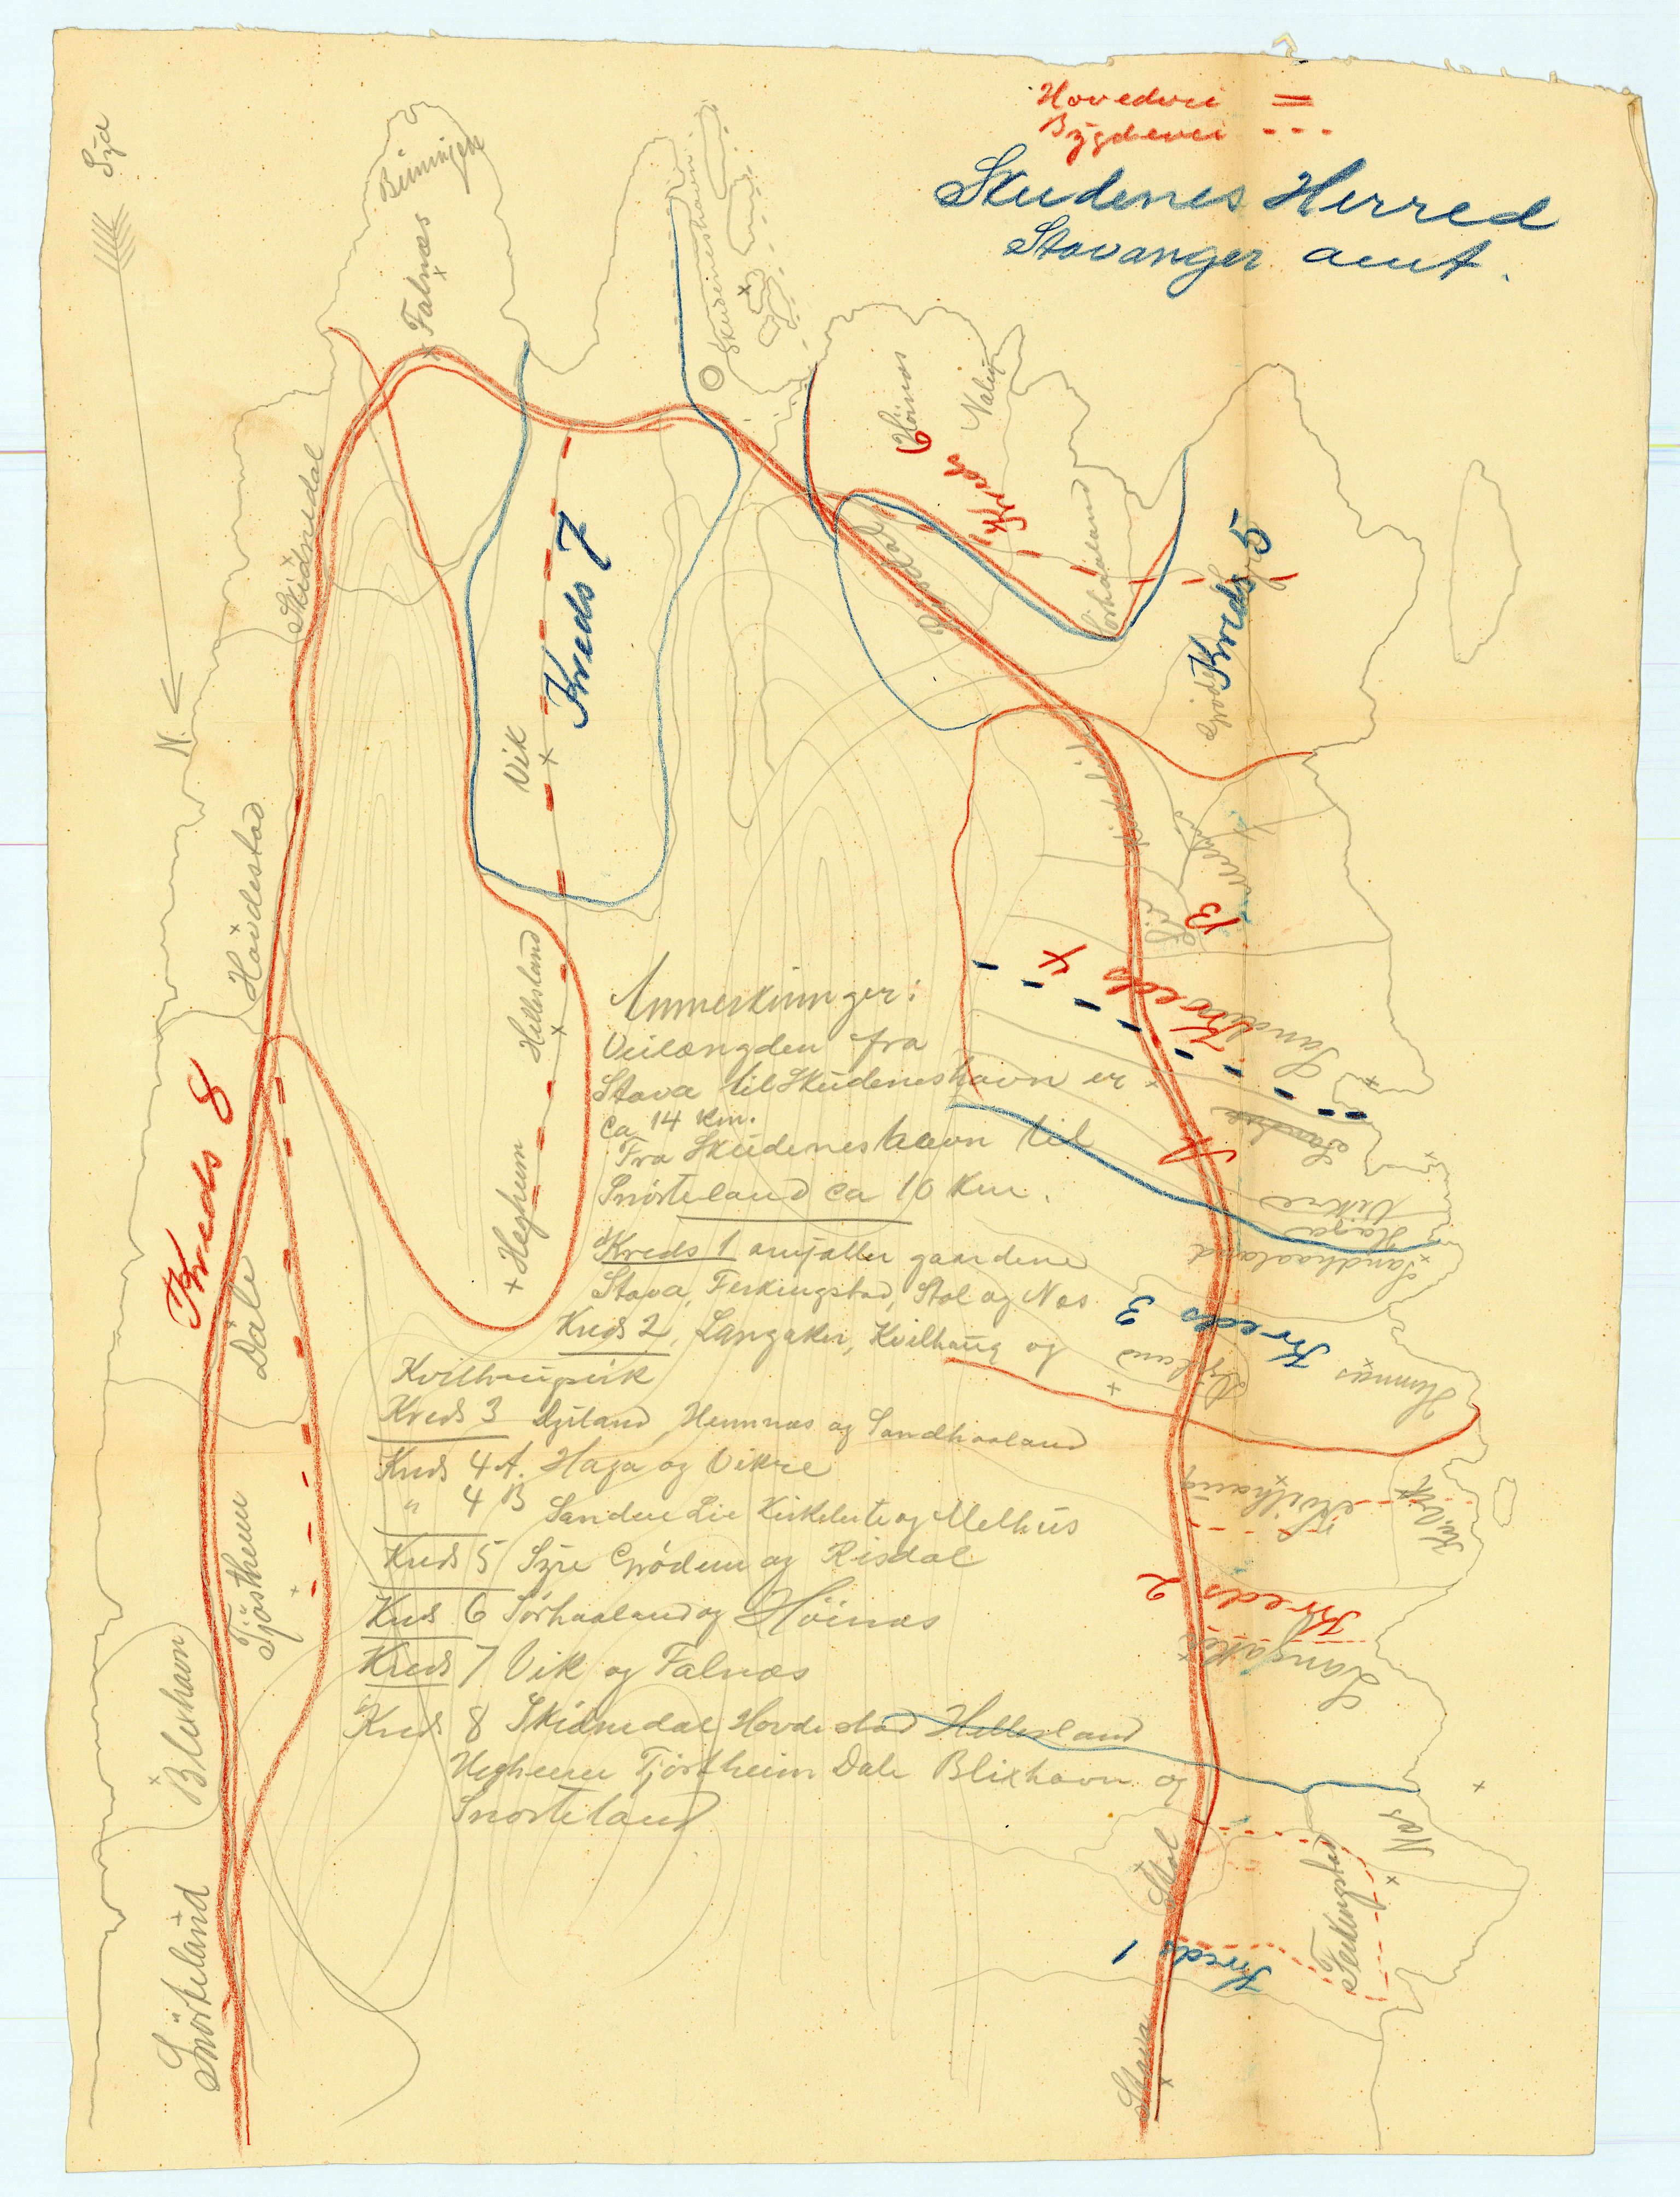 Hovedvei =
Bygdevei - - -
Skudenes Herred
Stavanger amt.
Syd
N.
Falnæs
Skudeneshavn
Höinæs
Kreds 6
Sørhaaland
Kreds 5
Skidnedal
Kreds 7
Vik
Hovdestad
Hillesland
Hegheim
Kreds 8
Dale
Tjøstheim
Blixhavn
Snørteland
Lie
B
Kreds 4
Sandve
A
Vikre
Haga
Sandhaaland
Kreds 3
Hemnæs
Kvilhaug
Kreds 2
Langaker
Næs
Stol
Ferkingstad
Kreds 1
Stava
Anmerkninger:
Veilængden fra
Stava til Skudeneshavn er
ca 14 km.
Fra Skudeneshavn til
Snørteland ca 10 km.
Kreds 1 omfatter gaardene
Stava, Ferkingstad, Stol og Næs
Kreds 2, Langaker, Kvilhaug og
Kreds 3 Hemnæs og Sandhaaland
Kreds 4 A. Haga og Vikre
" 4 B Sandve Lie Kirkeleite og Melhus
Kreds 5 Syre Grødem og Risdal
Kreds 6 Sørhaaland og Höinæs
Kreds 7 Vik og Falnæs
Kreds 8 Skidnedal Hovdestad Hillesland
Hegheim Tjøstheim Dale Blixhavn og
Snørteland